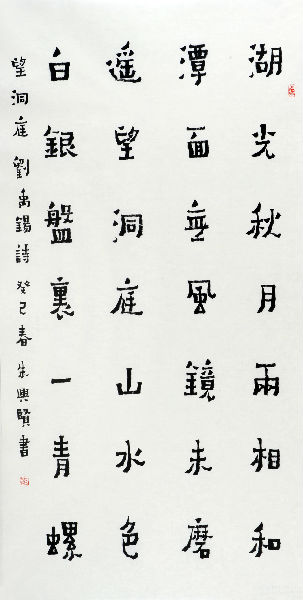 湖光秋月兩相和
潭面無風鏡未磨
遥望洞庭山水色
白銀盤裏一青螺
望洞庭 劉禹錫詩 癸巳春 朱興賢書